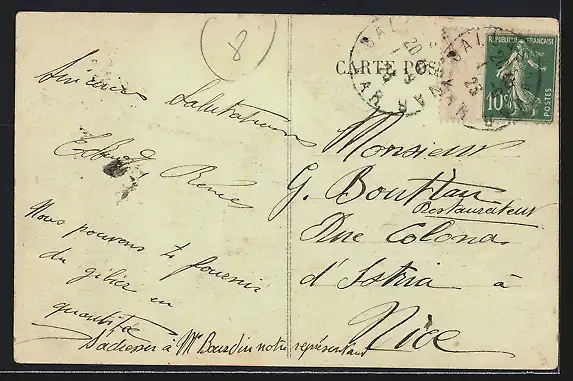 8
CARTE POSTALE
REPUBLIQUE FRANÇAISE
10c
POSTES
Sincères Salutations
René
Nous pouvons te fournir
du gibier en
quantité
S'adresser à Mr Bourdin notre représentant
Monsieur
G. Bouttau
Restaurateur
Rue Colona
d'Istria à
Nice